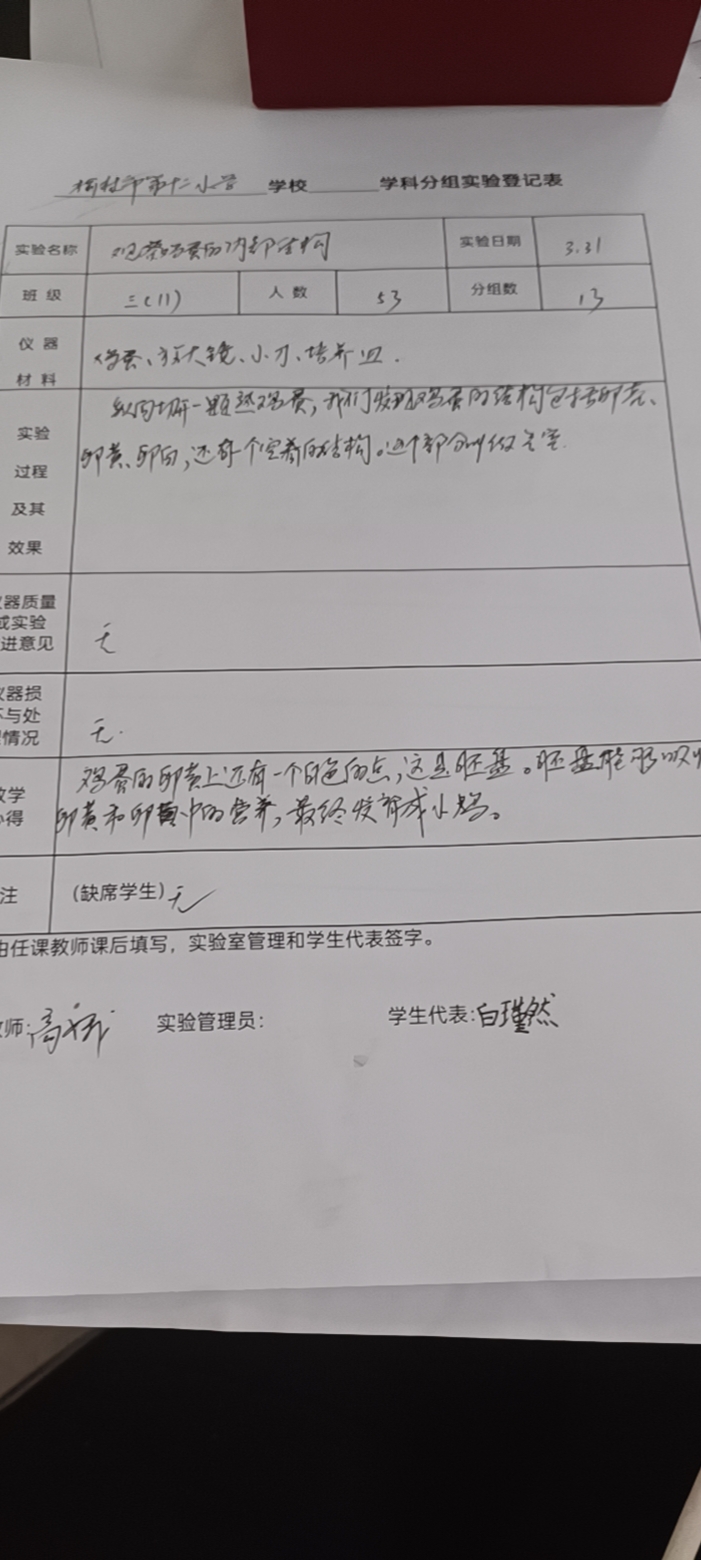 市第十二小学 学校 学科分组实验登记表
实验名称 观察鸡蛋的内部结构 实验日期 3.31
班级 三(11) 人数 53 分组数 13
仪器
材料
鸡蛋、放大镜、小刀、培养皿.
实验
过程
及其
效果
纵向切开一颗熟鸡蛋,我们发现鸡蛋的结构包括卵壳、
卵黄、卵白,还有个空着的结构。这个部分叫做气室.
器质量
或实验
进意见
无
器损
与处
情况
无.
学
得
鸡蛋的卵黄上还有一个白色的点,这是胚盘。胚盘能够吸收
卵黄和卵黄中的营养,最终发育成小鸡。
注
(缺席学生)无
由任课教师课后填写,实验室管理和学生代表签字。
师: 实验管理员: 学生代表:白瑾然